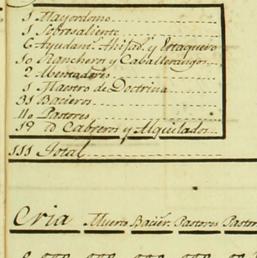 1 Mayordomo
1 Sobresaliente
6 Ayudant. Ahijad. y Estaquero
10 Rancheros y Caballerangos
2
1 Maestro de Doctrina
31 Bacieros
40 Pastores
19 id Cabreros y Alquilados
111 Total
Cria Muerto Bacier. Pastores Pastor